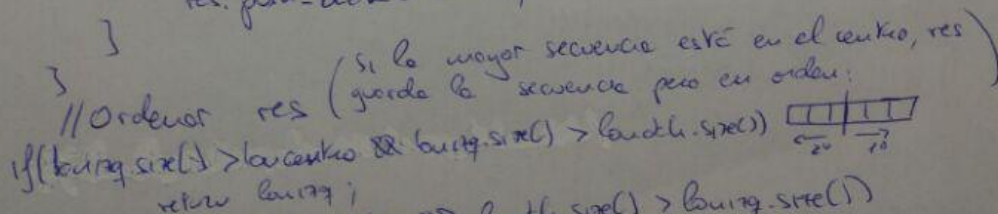 res.push_
}
}
//Ordenar res (si la mayor secuencia está en el centro, res
guarda la secuencia pero en orden:)
2º 1º
if(lonizq.size() > loncentro && lonizq.size() > londch.size())
return lonizq;
size() > lonizq.size())